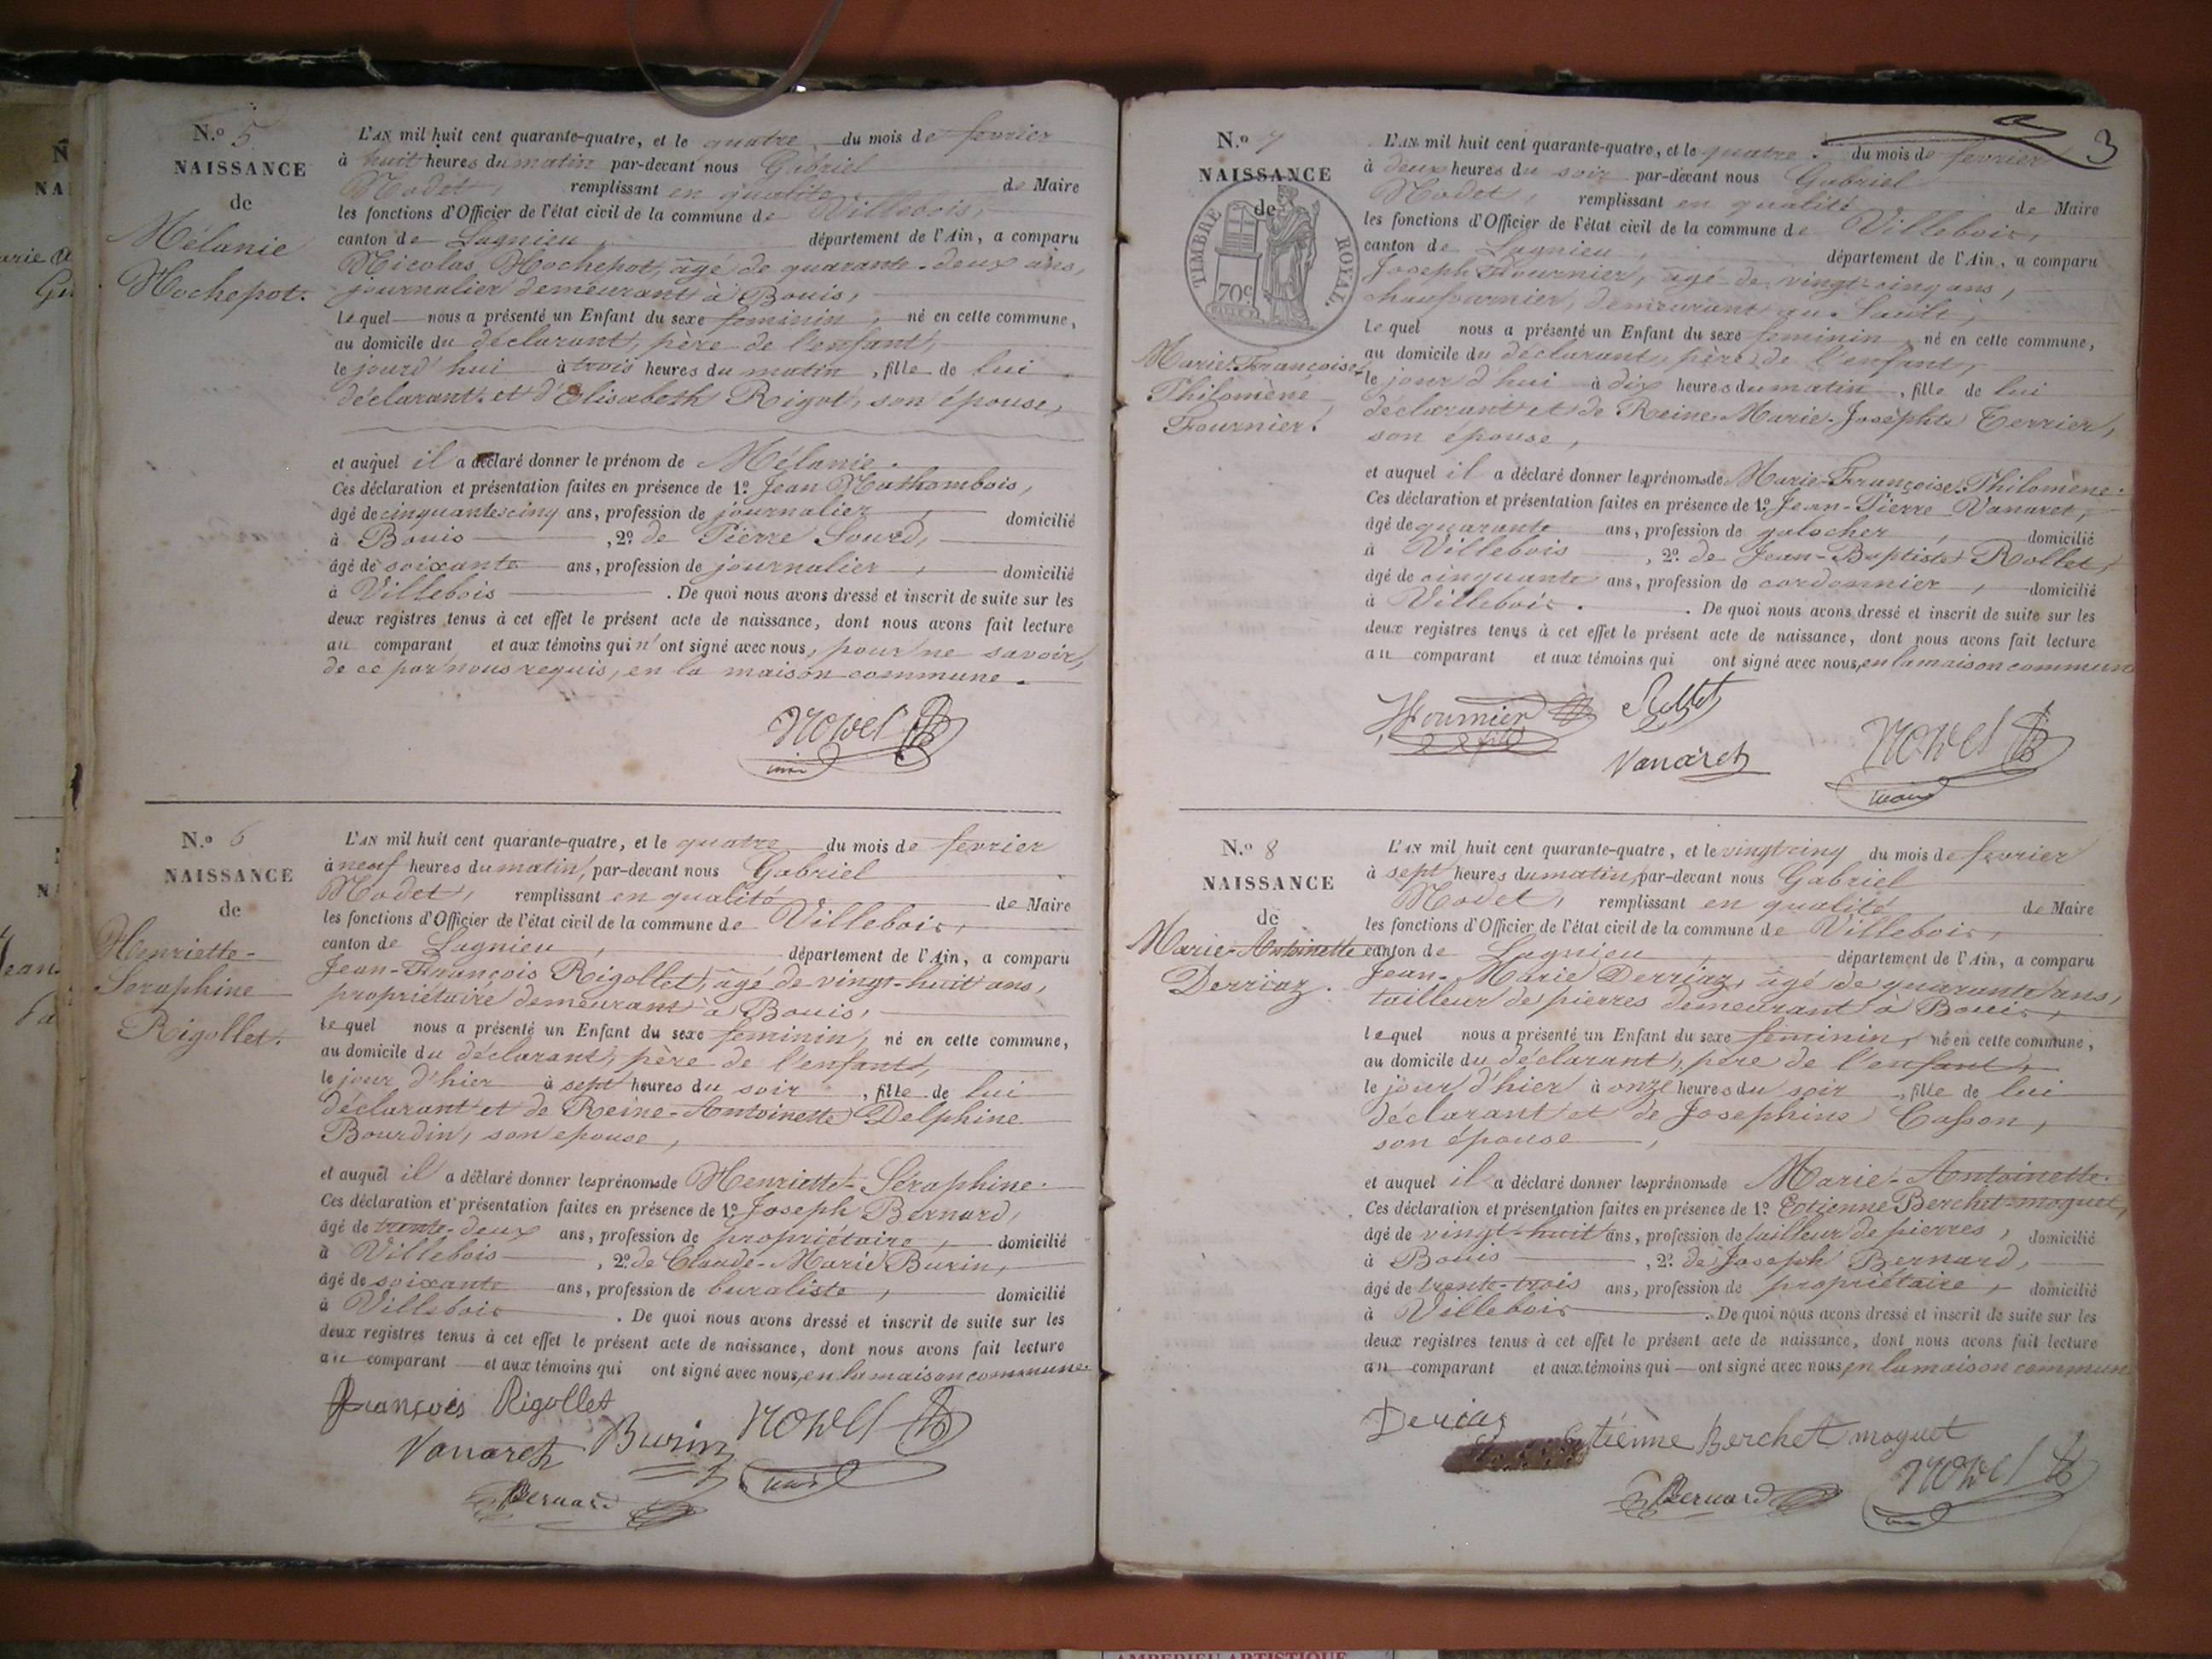 N.º 5
NAISSANCE
de
Mélanie
Hochepot.
L'AN mil huit cent quarante-quatre, et le quatre du mois de fevrier
à huit heures du matin par-devant nous Gabriel
Nodet, remplissant en qualité de Maire
les fonctions d'Officier de l'état civil de la commune de Villebois,
canton de Lagnieu, département de l'Ain, a comparu
Nicolas Hochepot, âgé de quarante-deux ans,
journalier demeurant à Bouis,
lequel nous a présenté un Enfant du sexe feminin, né en cette commune,
au domicile du déclarant, père de l'enfant,
le jourd'hui à trois heures du matin, fille de lui
déclarant et d'Elisabeth Rigot, son épouse,
et auquel il a déclaré donner le prénom de Mélanie.
Ces déclaration et présentation faites en présence de 1º Jean Mathombois,
âgé de cinquante cinq ans, profession de journalier, domicilié
à Bouis, 2º de Pierre Sourd,
âgé de soixante ans, profession de journalier, domicilié
à Villebois. De quoi nous avons dressé et inscrit de suite sur les
deux registres tenus à cet effet le présent acte de naissance, dont nous avons fait lecture
au comparant et aux témoins qui n'ont signé avec nous, pour ne savoir,
de ce par nous requis, en la maison commune.
N.º 6
NAISSANCE
de
Henriette-
Seraphine
Rigollet.
L'AN mil huit cent quarante-quatre, et le quatre du mois de fevrier
à neuf heures du matin, par-devant nous Gabriel
Nodet, remplissant en qualité de Maire
les fonctions d'Officier de l'état civil de la commune de Villebois,
canton de Lagnieu, département de l'Ain, a comparu
Jean-François Rigollet, âgé de vingt-huit ans,
propriétaire demeurant à Bouis,
lequel nous a présenté un Enfant du sexe feminin, né en cette commune,
au domicile du déclarant, père de l'enfant,
le jour d'hier à sept heures du soir, fille de lui
déclarant et de Reine-Antoinette Delphine
Bourdin, son epouse,
et auquel il a déclaré donner les prénoms de Henriette-Séraphine.
Ces déclaration et présentation faites en présence de 1º Joseph Bernard,
âgé de trente-deux ans, profession de propriétaire, domicilié
à Villebois, 2º de Claude-Marie Burin,
âgé de soixante ans, profession de buraliste, domicilié
à Villebois. De quoi nous avons dressé et inscrit de suite sur les
deux registres tenus à cet effet le présent acte de naissance, dont nous avons fait lecture
au comparant et aux témoins qui ont signé avec nous, en la maison commune.
François Rigollet
Vanaret Burin
Bernard
3
N.º 7
NAISSANCE
de
TIMBRE ROYAL.
70c
Marie-Françoise-
Philomène
Fournier.
L'AN mil huit cent quarante-quatre, et le quatre du mois de fevrier
à deux heures du soir par-devant nous Gabriel
Nodet, remplissant en qualité de Maire
les fonctions d'Officier de l'état civil de la commune de Villebois,
canton de Lagnieu, département de l'Ain, a comparu
Joseph Fournier, âgé de vingt-cinq ans,
chaufournier, demeurant au Sault,
lequel nous a présenté un Enfant du sexe feminin, né en cette commune,
au domicile du déclarant, père de l'enfant,
le jour d'hui à dix heures du matin, fille de lui
déclarant et de Reine-Marie-Joséphte Terrier,
son épouse,
et auquel il a déclaré donner les prénoms de Marie-Françoise-Philomène.
Ces déclaration et présentation faites en présence de 1º Jean-Pierre Vanaret,
âgé de quarante ans, profession de galocher, domicilié
à Villebois, 2º de Jean-Baptiste Rollet,
âgé de cinquante ans, profession de cordonnier, domicilié
à Villebois. De quoi nous avons dressé et inscrit de suite sur les
deux registres tenus à cet effet le présent acte de naissance, dont nous avons fait lecture
au comparant et aux témoins qui ont signé avec nous, en la maison commune
Fournier fils Rollet
Vanaret
N.º 8
NAISSANCE
de
Marie-Antoinette
Derriaz.
L'AN mil huit cent quarante-quatre, et le vingt cinq du mois de fevrier
à sept heures du matin, par-devant nous Gabriel
Nodet, remplissant en qualité de Maire
les fonctions d'Officier de l'état civil de la commune de Villebois,
canton de Lagnieu, département de l'Ain, a comparu
Jean-Marie Derriaz, âgé de quarante ans,
tailleur de pierres demeurant à Bouis,
lequel nous a présenté un Enfant du sexe feminin, né en cette commune,
au domicile du déclarant, père de l'enfant,
le jour d'hier à onze heures du soir, fille de lui
déclarant et de Josephine Casson,
son épouse,
et auquel il a déclaré donner les prénoms de Marie-Antoinette.
Ces déclaration et présentation faites en présence de 1º Etienne Berchet-moguet,
âgé de vingt-huit ans, profession de tailleur de pierres, domicilié
à Bouis, 2º de Joseph Bernard,
âgé de trente-trois ans, profession de propriétaire, domicilié
à Villebois. De quoi nous avons dressé et inscrit de suite sur les
deux registres tenus à cet effet le présent acte de naissance, dont nous avons fait lecture
au comparant et aux témoins qui ont signé avec nous, en la maison commun
Deriaz
Etienne Berchet moguet
Bernard